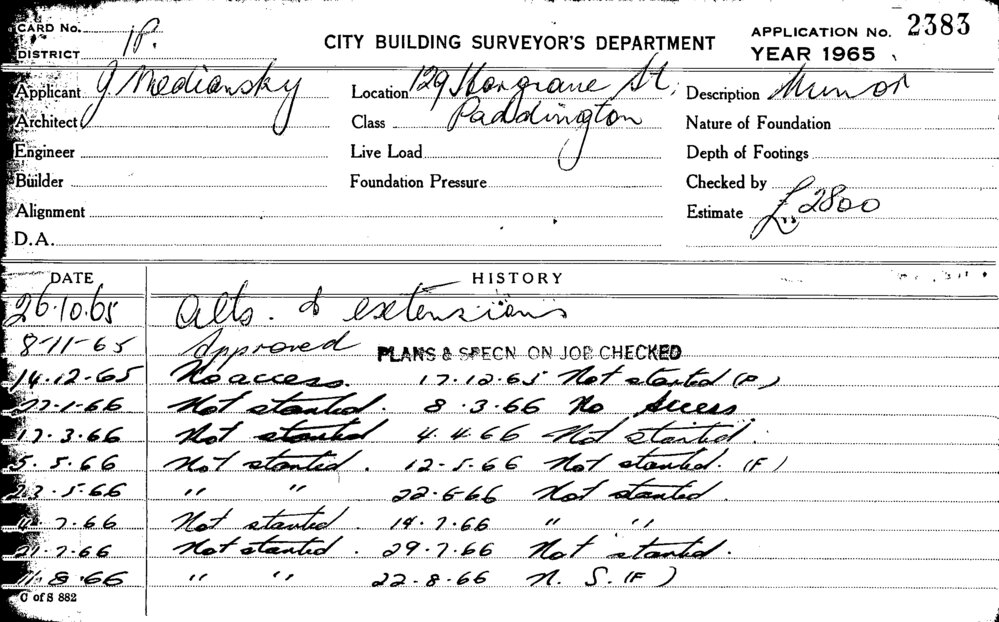 CARD No.
DISTRICT 1P.
CITY BUILDING SURVEYOR'S DEPARTMENT
APPLICATION No. 2383
YEAR 1965
Applicant J Mediansky Location 129 Hargrave St, Description Minor
Architect Class Paddington Nature of Foundation
Engineer Live Load Depth of Footings
Builder Foundation Pressure Checked by
Alignment Estimate £2800
D.A.
DATE HISTORY
26.10.65 Alts. & extensions
8-11-65 Approved PLANS & SPECN ON JOB CHECKED
14.12.65 No access. 17.12.65 Not started (P)
27-1-66 Not started. 8.3.66 No Access
17.3.66 Not started 4.4.66 Not started.
5.5.66 Not started. 12-5.66 Not started. (F)
23.5.66 " " 22.6.66 Not started.
7.66 Not started. 14.7.66 " "
21.7.66 Not started. 29.7.66 Not started.
11.8.66 " " 22.8.66 N. S. (F)
C of S 882